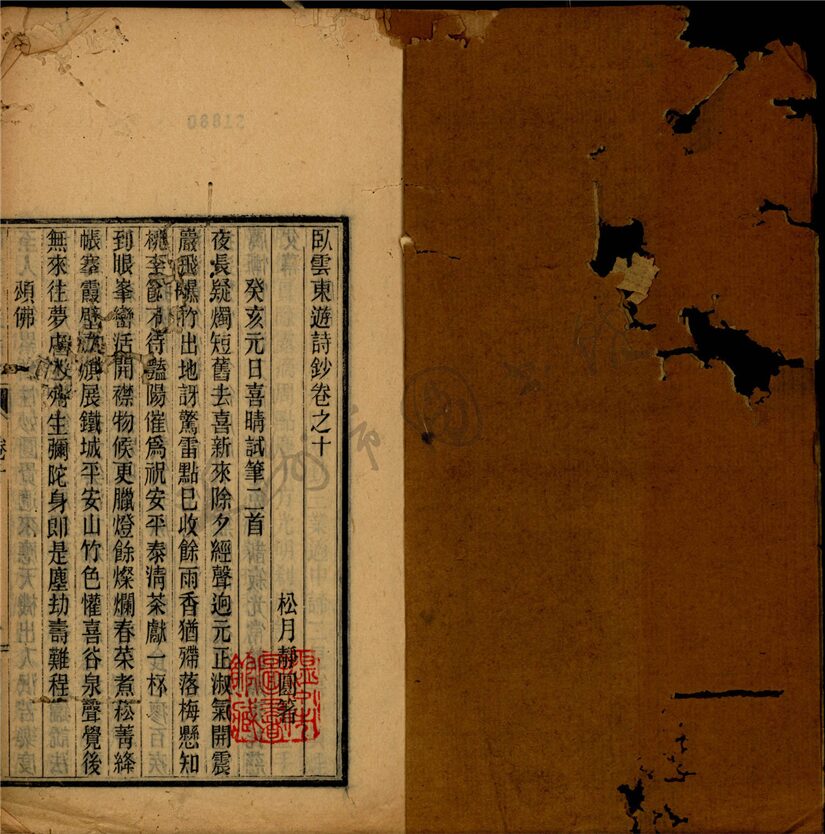 臥雲東遊詩鈔卷之十
松月靜圓著
癸亥元日喜晴試筆二首
夜長疑燭短舊去喜新來除夕經聲迥元正淑氣開震
巖飛爆竹出地訝驚雷點已收餘雨香猶殢落梅懸知
桃李節不待豔陽催爲祝安平泰淸茶獻一杯
到眼峯巒活開襟物候更臘燈餘燦爛春菜煮菘菁絳
帳搴霞壁旗展鐵城平安山竹色懽喜谷泉聲覺後
無來往夢生彌陀身即是塵劫壽難程
頌佛
圖書
館藏